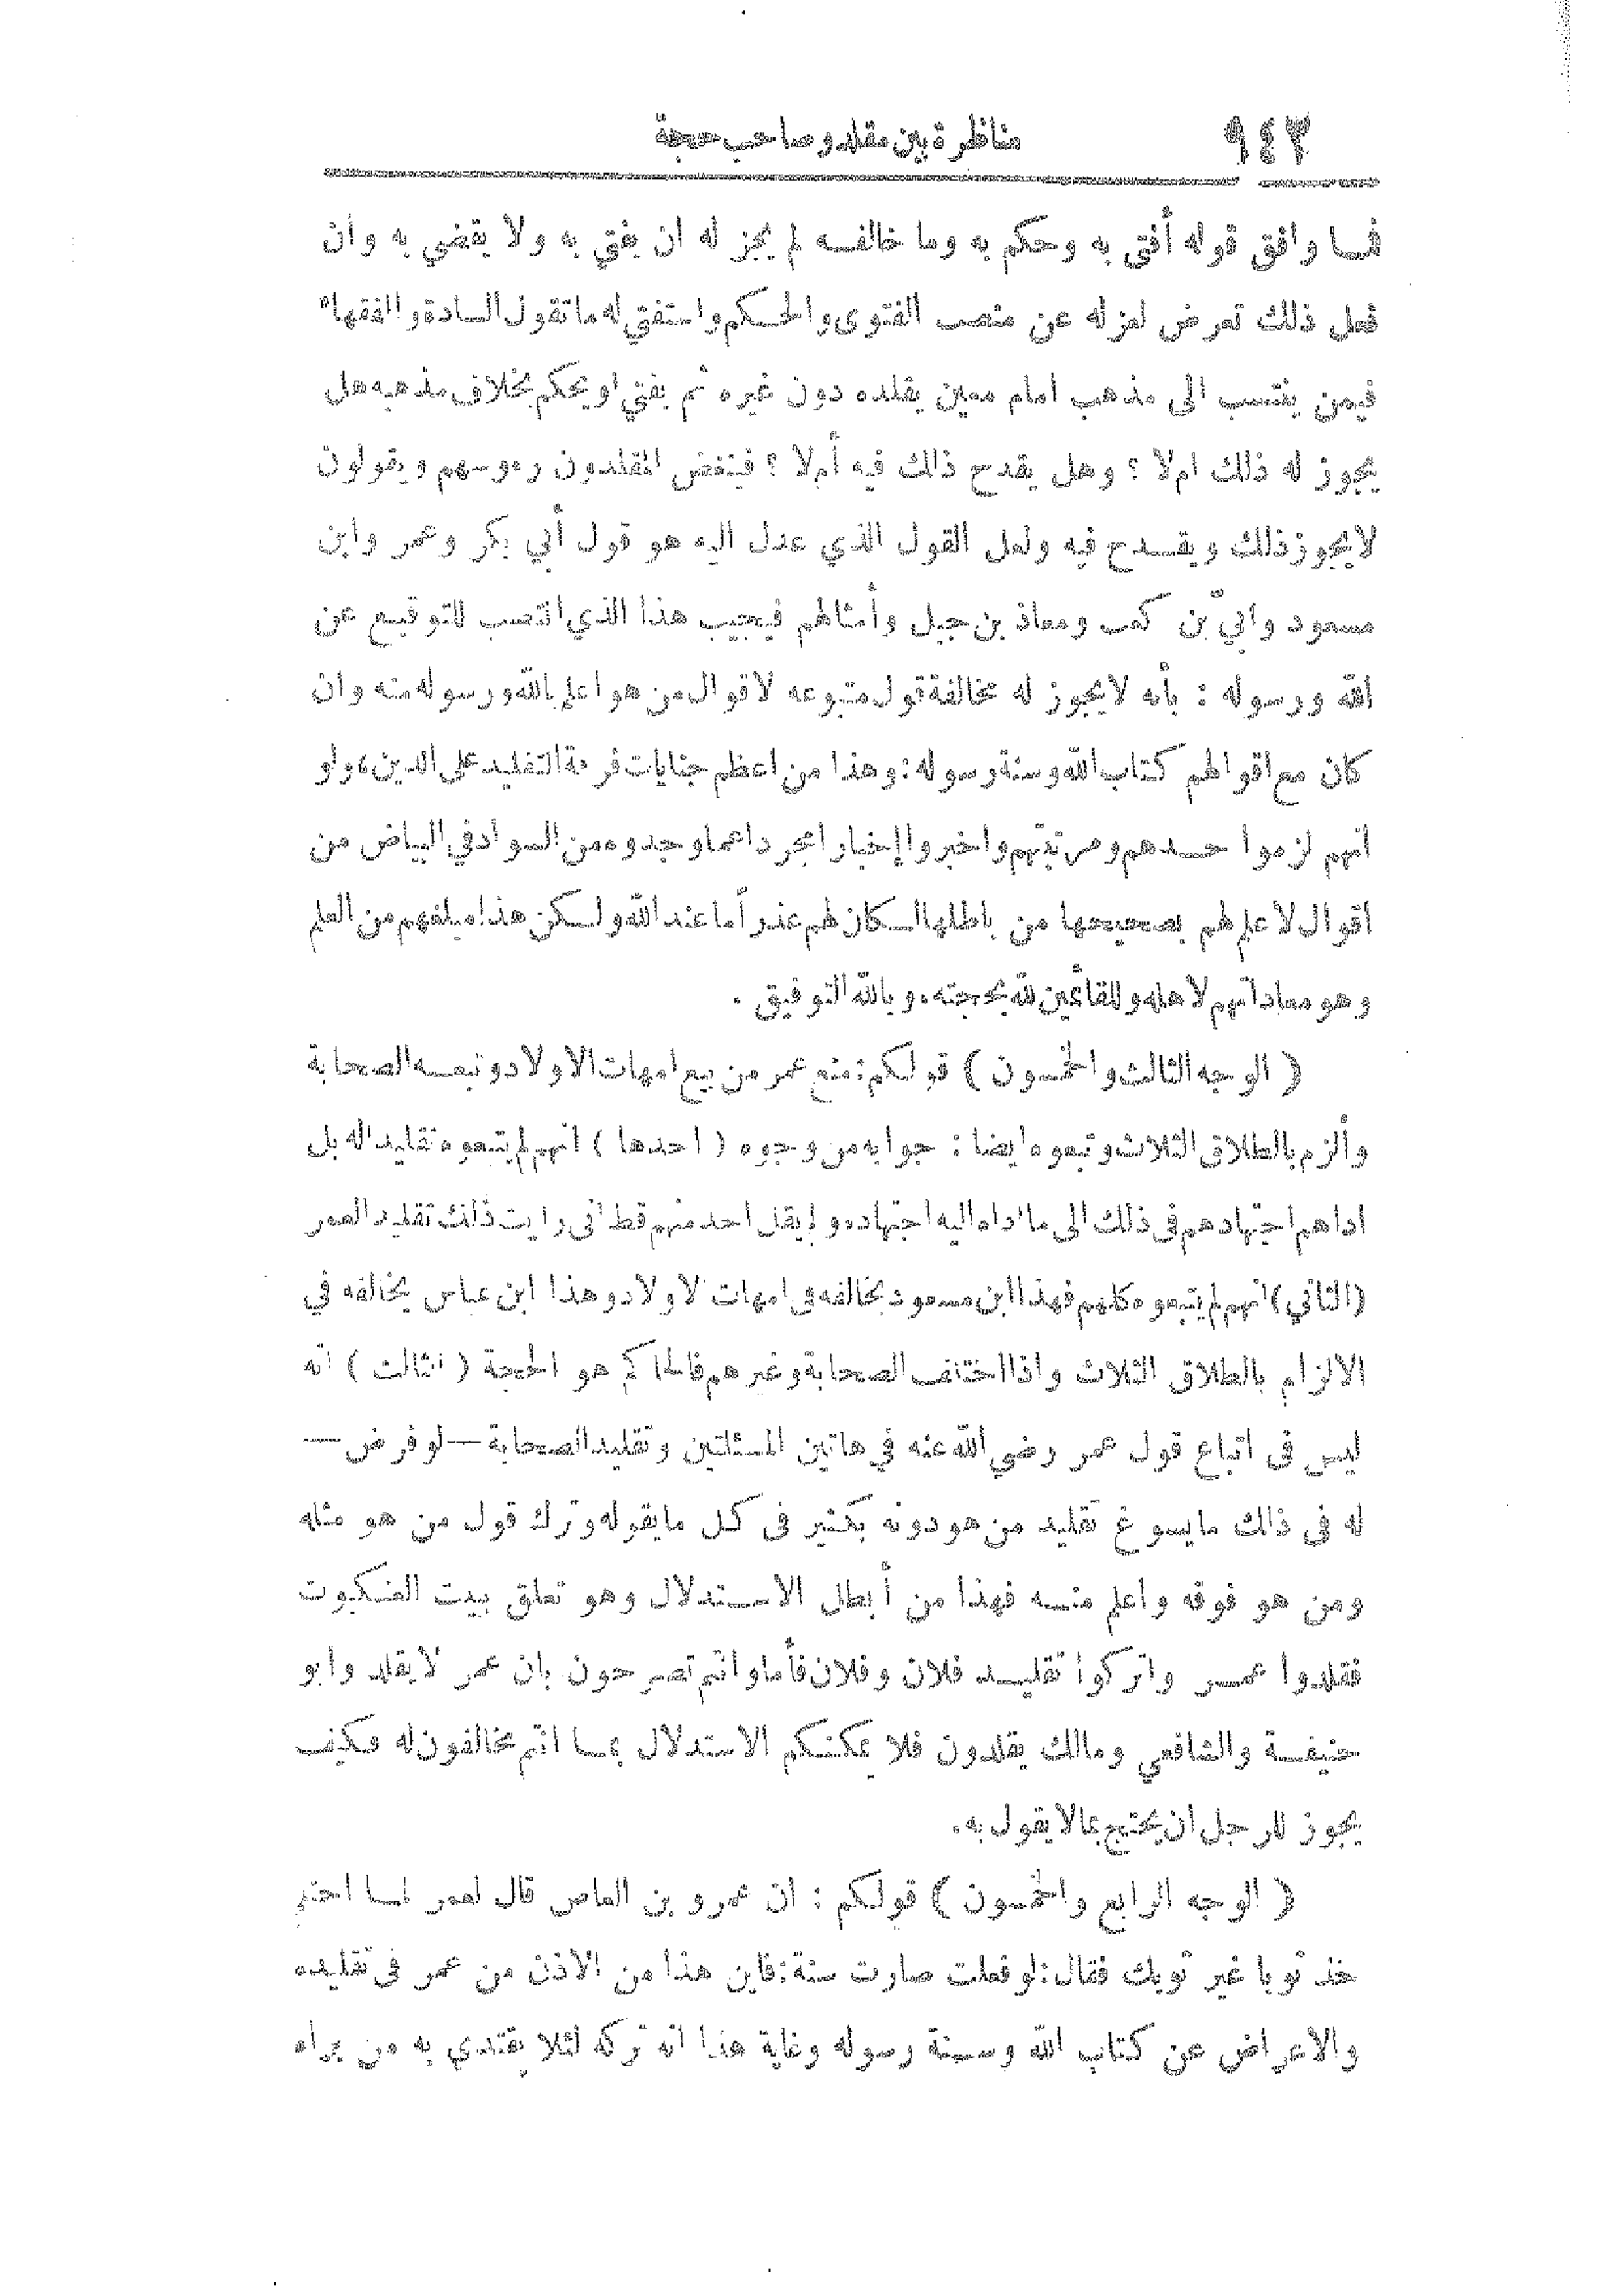 ٩٤٣ مناظرة بين مقلد وصاحب حجة
فما وافق قوله أفتى به وحكم به وما خالفه لم يجز له ان يفتي به ولا يقضي به وان
فعل ذلك تعرض لعزله عن منصب الفتوى والحكم واستفتي له ما تقول السادة والفقهاء
فيمن ينتسب الى مذهب امام معين يقلده دون غيره ثم يفتي او يحكم بخلاف مذهبه هل
يجوز له ذلك ام لا ؟ وهل يقدح ذلك فيه أم لا ؟ فينغض المقلدون رءوسهم ويقولون
لا يجوز ذلك ويقدح فيه ولعل القول الذي عدل اليه هو قول أبي بكر وعمر وابن
مسعود وابيّ بن كعب ومعاذ بن جبل وأمثالهم فيجيب هذا الذي انتصب للتوقيع عن
الله ورسوله : بأنه لا يجوز له مخالفة قول متبوعه لاقوال من هو اعلم بالله ورسوله منه وان
كان مع اقوالهم كتاب الله وسنة رسوله : وهذا من اعظم جنايات فرقة التقليد على الدين، ولو
انهم لزموا حدهم ومرتبتهم واخبروا إخبارا مجردا عما وجدوه من السواد في البياض من
أقوال لا علم لهم بصحيحها من باطلها لكان لهم عذر أما عند الله ولكن هذا مبلغهم من العلم
وهو معاداتهم لاهله وللقائمين لله بحججته، وبالله التوفيق .
( الوجه الثالث والخمسون ) قولكم : منع عمر من بيع امهات الاولاد وتبعه الصحابة
وألزم بالطلاق الثلاث وتبعوه ايضا : جوابه من وجوه ( احدها ) انهم لم يتبعوه تقليدا له بل
اداهم اجتهادهم فى ذلك الى ما اداه اليه اجتهاده ولم يقل احد منهم قط انى رايت ذلك تقليدا لعمر
(الثاني) انهم لم يتبعوه كلهم فهذا ابن مسعود يخالفه فى امهات الاولاد وهذا ابن عباس يخالفه في
الالزام بالطلاق الثلاث واذا اختلف الصحابة وغيرهم فالحاكم هو الحجة ( الثالث ) انه
ليس فى اتباع قول عمر رضي الله عنه في هاتين المسئلتين وتقليد الصحابة — لو فرض —
له فى ذلك ما يسوغ تقليد من هو دونه بكثير فى كل ما يقوله وترك قول من هو مثله
ومن هو فوقه واعلم منه فهذا من أبطل الاستدلال وهو تعلق ببيت العنكبوت
فقلدوا عمر واتركوا تقليد فلان وفلان فأما وانتم تصرحون بان عمر لا يقلد وابو
حنيفة والشافعي ومالك يقلدون فلا يمكنكم الاستدلال بما انتم مخالفون له فكيف
يجوز للرجل ان يحتج بما لا يقول به.
( الوجه الرابع والخمسون ) قولكم : ان عمرو بن العاص قال لعمر لما احتلم
خذ ثوبا غير ثوبك فقال : لو فعلت صارت سنة : فاين هذا من الاذن من عمر فى تقليده
والاعراض عن كتاب الله وسنة رسوله وغاية هذا انه تركه لئلا يقتدي به من يراه